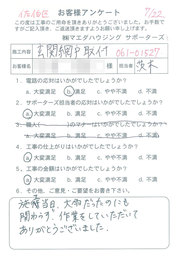 佐伯区
7/22
お客様アンケート
この度は工事のご用命を頂きありがとうございました。お手数で
すがご記入頂き、ご返送頂きますようお願い申し上げます。
㈱マエダハウジング サポーターズ
施工内容 玄関網戸取付 061-01527
お客様名 様 担当者 茨木
1. 電話の応対はいかがでしたでしょうか?
ⓐ大変満足 b.満足 c.やや不満 d.不満
2. サポーターズ担当者の応対はいかがでしたでしょうか?
ⓐ大変満足 b.満足 c.やや不満 d.不満
のマナーはいかがでしたでしょうか?
a.大変満足 b.満足 c.やや不満 d.不満
4. 工事の仕上がりはいかがでしたでしょうか?
ⓐ大変満足 b.満足 c.やや不満 d.不満
5. 工事の価格はいかがでしたでしょうか?
ⓐ大変満足 b.満足 c.やや不満 d.不満
6. その他、ご意見・ご要望をお書き下さい。
施工当日、大雨だったのにも
関わらず、作業をしていただいて
ありがとうございました。